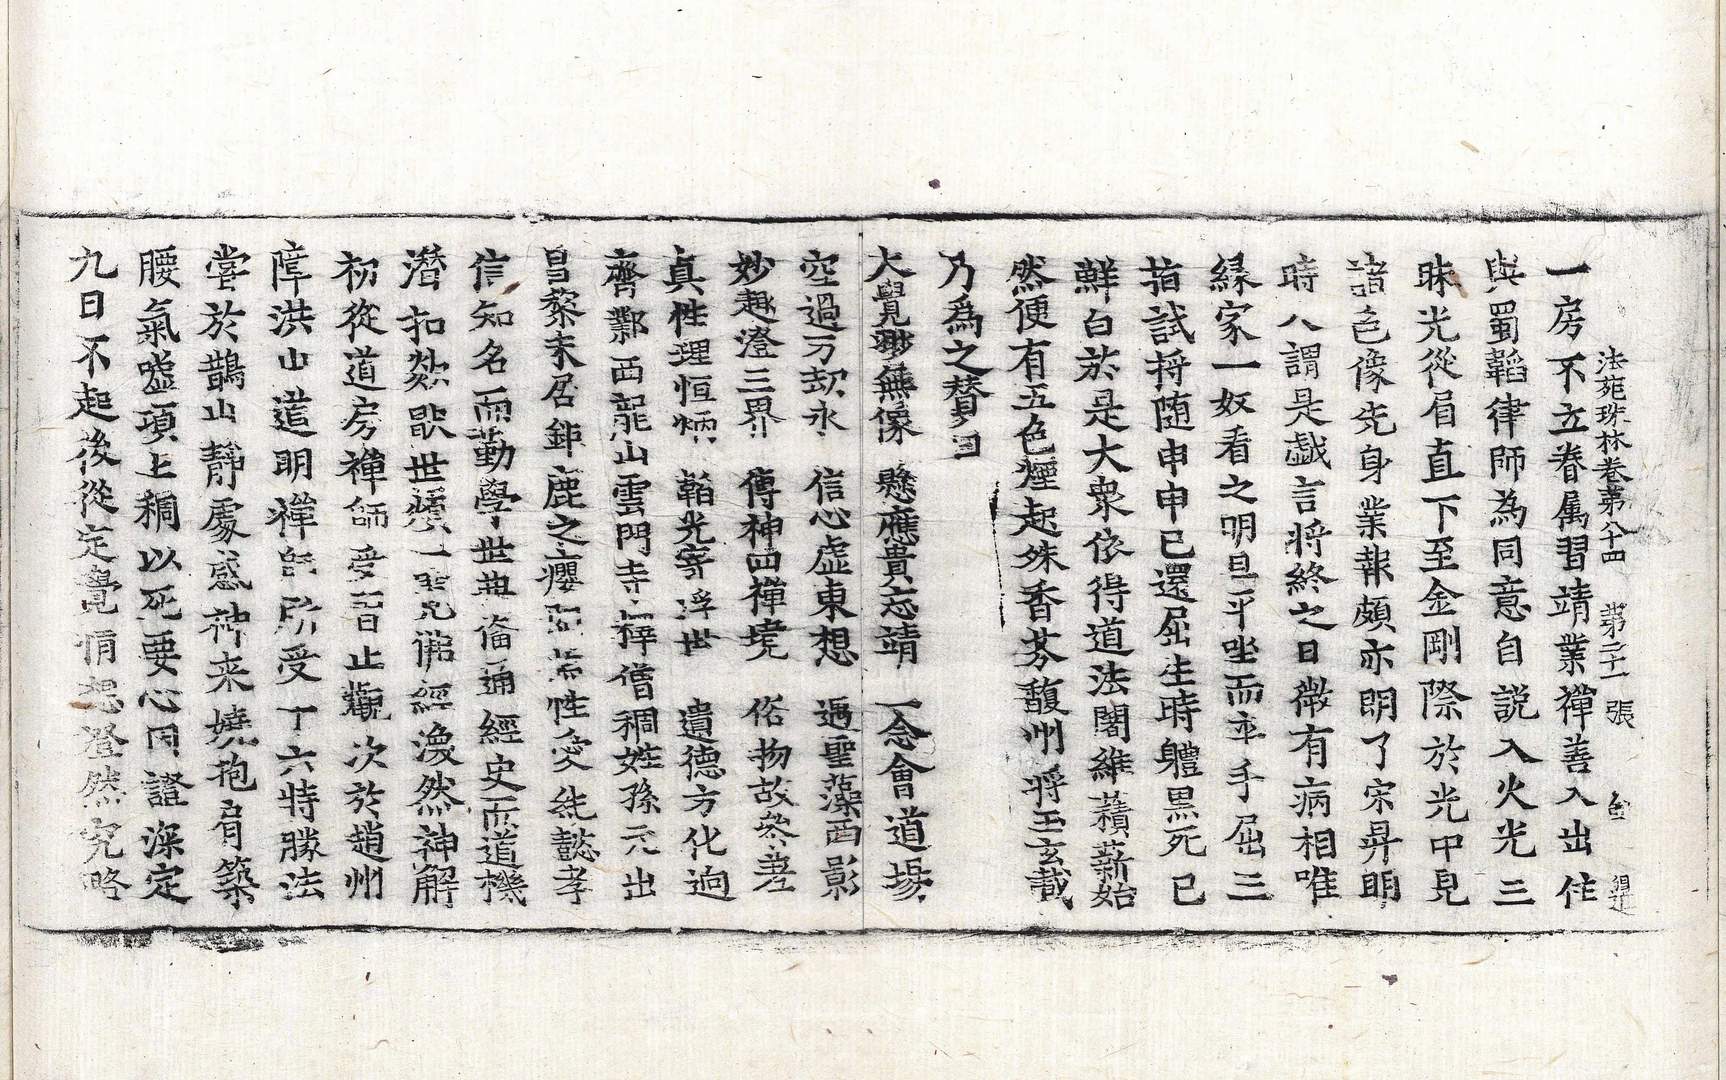 法苑珠林卷第八十四　第二十一張
一房不立眷属習靖業禪善入出住
與蜀韜律師為同意自説入火光三
昧光從眉直下至金剛際於光中見
諸色像先身業報頗亦明了宋昇明
時八謂是戯言將終之日微有病相唯
縁家一奴看之明旦平坐而卒手屈三
指試捋随申申已還屈生時軆黒死已
鮮白於是大衆依得道法闍維蘱薪始
然便有五色煙起殊香芬馥州將王玄載
乃為之賛曰
大覺眇無像　懸應貴忘靖　一念會道場
空過万刼永　信心虚東想　遇聖藻西影
妙趣澄三界　傳神四禪境　俗物故叅差
真性理恒炳　韜光寄浮世　遺德方化逈
齊鄴西龍山雲門寺釋僧稠姓孫元出
昌黎末居鉅鹿之癭陶焉性愛純懿孝
信知名而勤學世典俻通經史而道機
潛扣欻厭世煩一覽佛經渙然神解
初從道房禪師受習止觀次於趙州
障洪山道明禪師所受十六特勝法
甞於鵲山静處感神来嬈抱肩築
腰氣嘘項上稠以死要心因證深定
九日不起後從定覺情想澄然究略